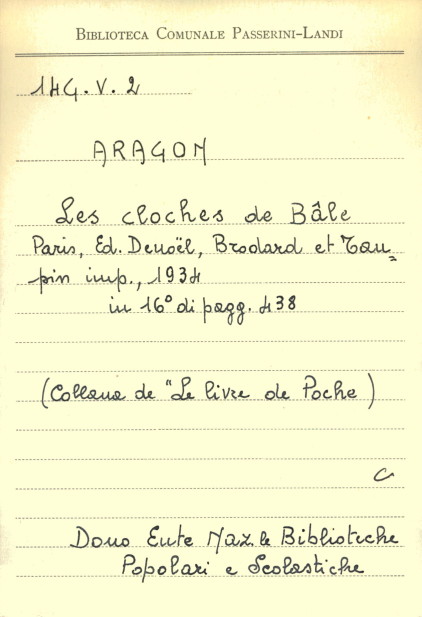 BIBLIOTECA COMUNALE PASSERINI-LANDI
14G.V.2
ARAGON
Les cloches de Bâle
Paris, Ed. Denoël, Brodard et Tau=
pin imp., 1934
in 16° di pagg. 438
(Collana de "Le livre de Poche)
C
Dono Ente Naz.le Biblioteche
Popolari e Scolastiche